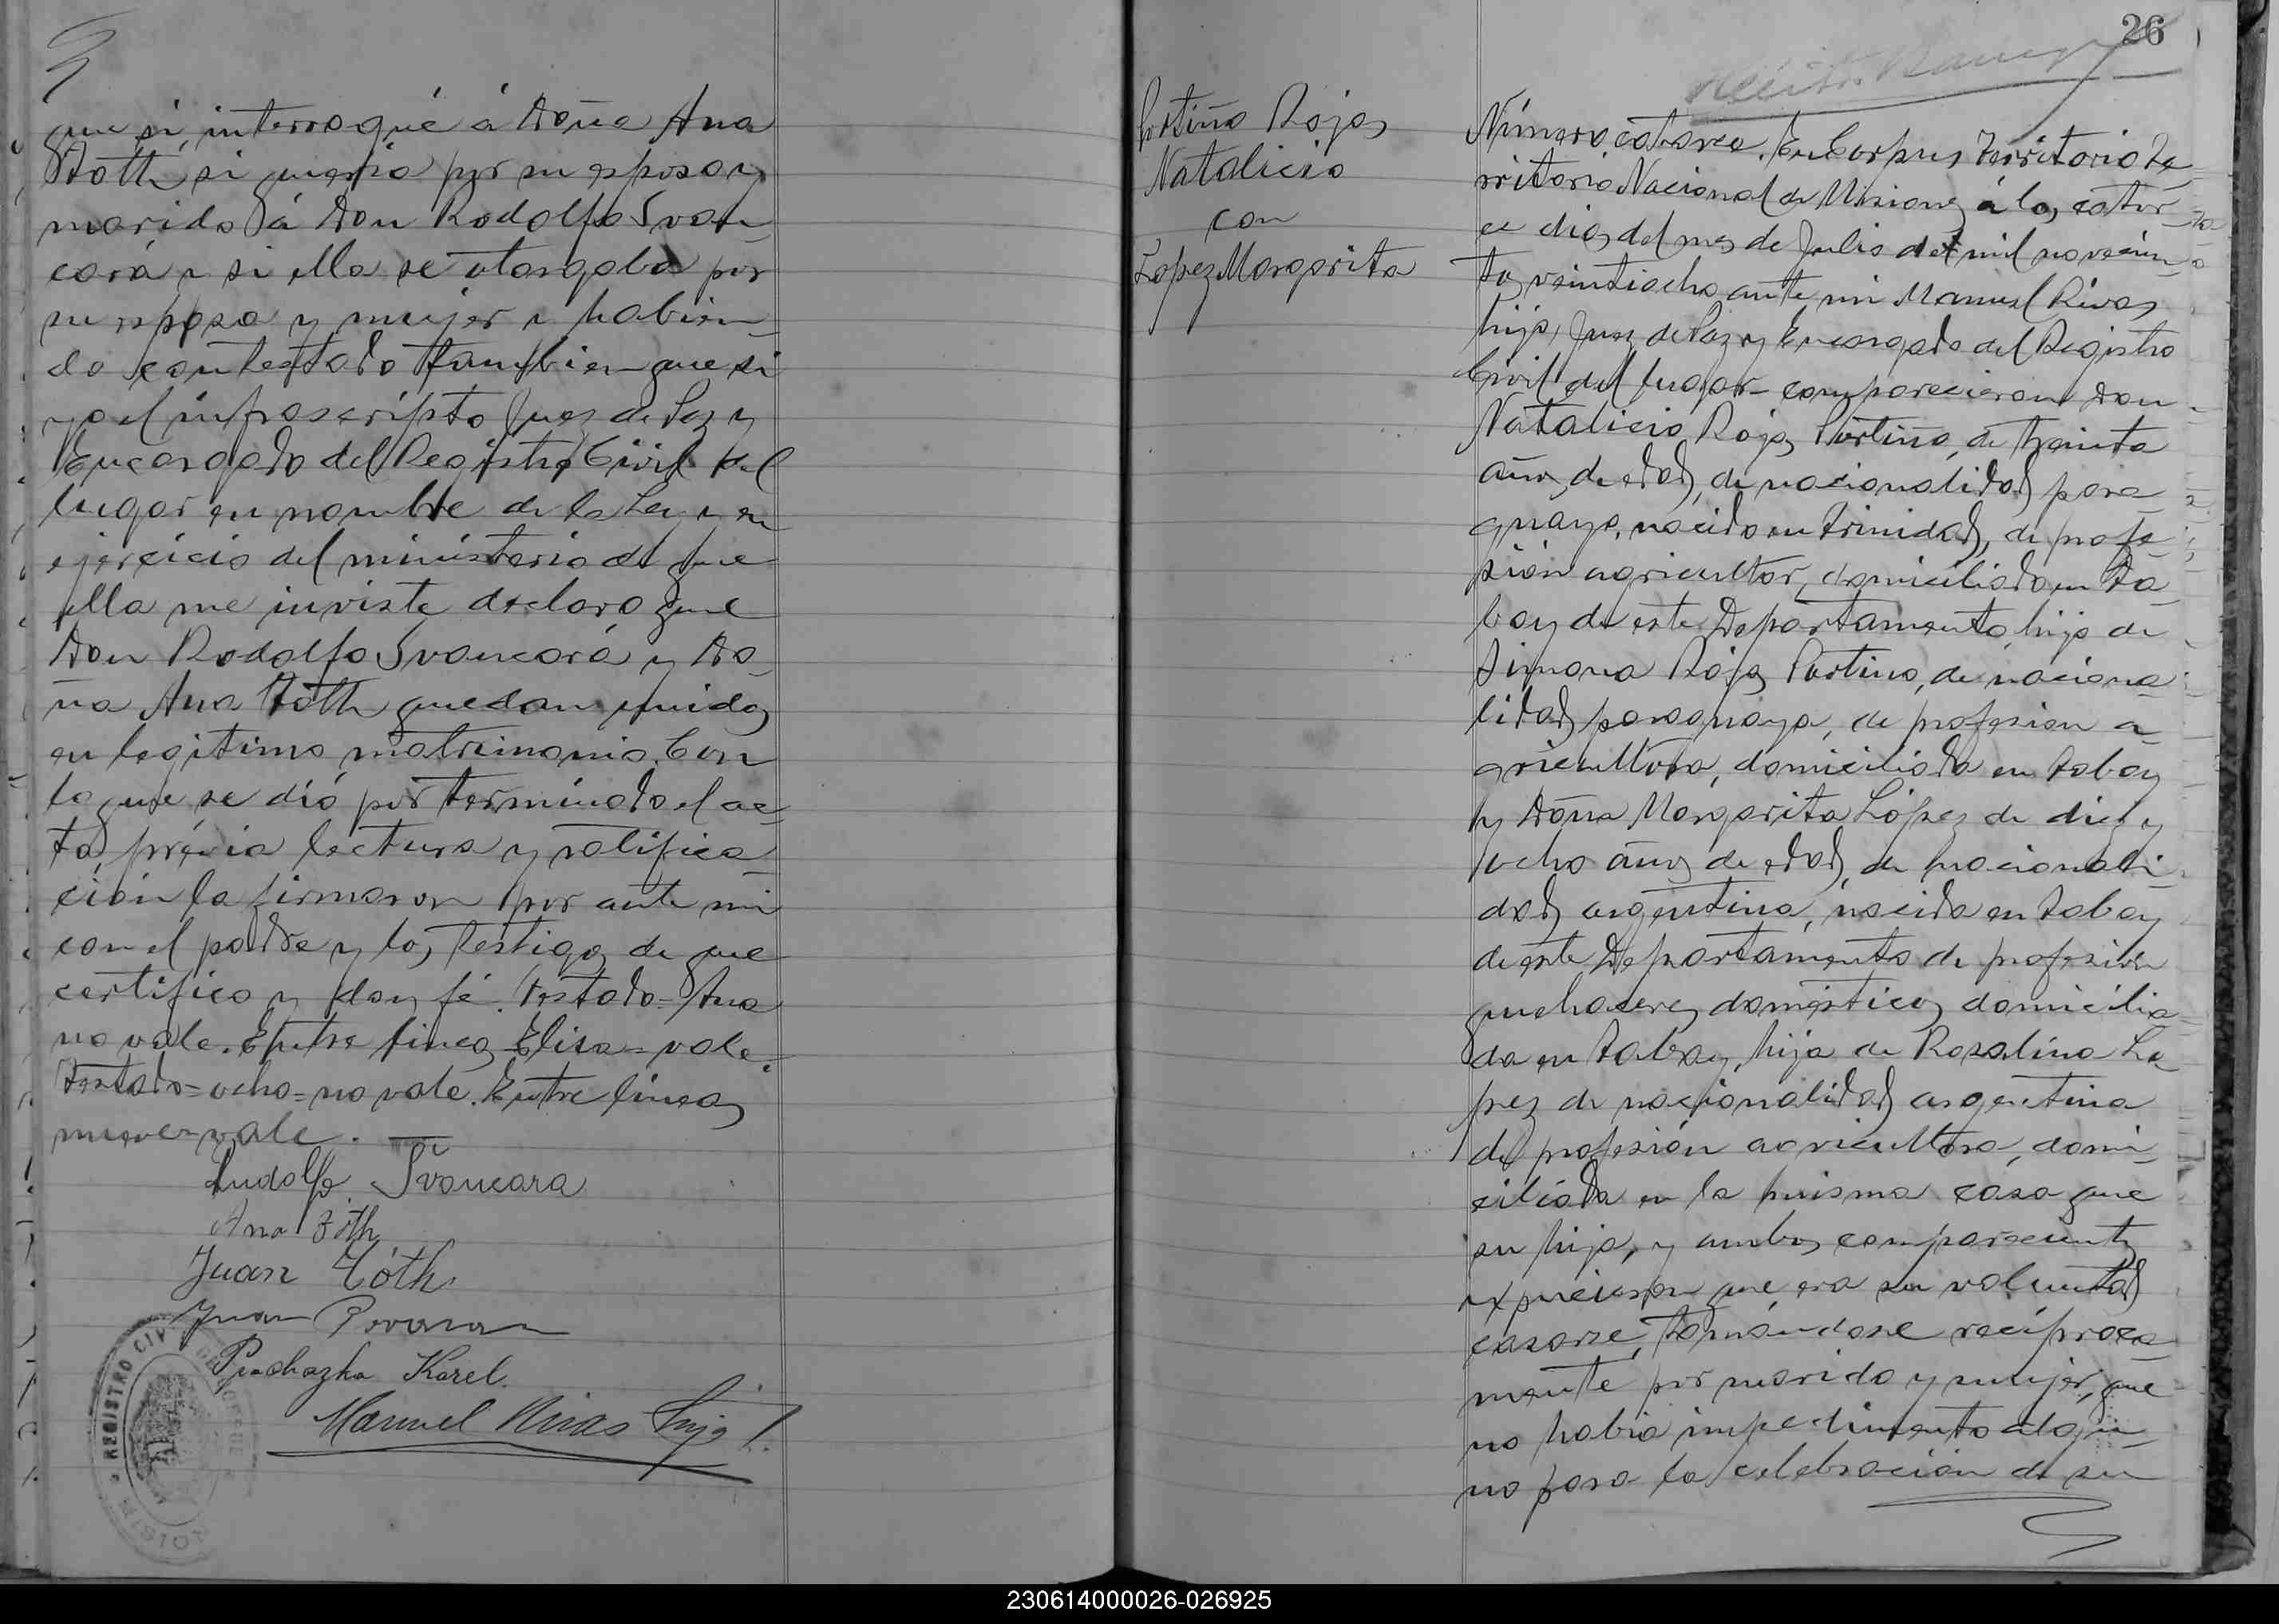 que si, interrogué á Doña Ana
Tóth si queria por su esposo y
marido á Don Rodolfo Svan
cará y si ella se otorgaba por
su esposa y mujer y habien
do contestado tambien que si
yo el infrascripto Juez de Paz y
Encargado del Registro Civil del
lugar en nombre de la Ley y en
ejercicio del ministerio de que
ella me inviste declaro que
Don Rodolfo Svancará y Do
ña Ana Tóth quedan unidos
en legitimo matrimonio. Con
lo que se dió por terminado el ac
ta, prévia lectura y ratifica
ción la firmaron por ante mi
con el padre y los testigos de que
certifico y doy fé. Testado=Ana
no vale. Entre lineas Elisa=vale.
Testado=ocho=no vale. Entre lineas
nueve=vale.
Rudolfo Svancara
Ana Tóth
Juan Tóth
Juan
Prochazka Karel.
Manuel Rivas hijo
REGISTRO CIV
26
Portiño Rojas
Natalicio
con
Lopez Margarita
Número catorce. En Corpus Territorio Te
rritorio Nacional de Misiones á los cator
ce dias del mes de Julio del mil novecien
tos veintiocho ante mi Manuel Rivas
hijo, Juez de Paz y Encargado del Registro
Civil del lugar comparecieron Don
Natalicio Rojas Portiño, de treinta
años de edad, de nacionalidad para
guaya, nacido en Trinidad, de profe
sión agricultor, domiciliado en Ta
bay de este Departamento, hijo de
Simona Rojas Portino, de naciona
lidad paraguaya, de profesion a
gricultora, domiciliada en Tabay
y Doña Margarita López de diez y
ocho años de edad, de nacionali
dad argentina, nacida en Tabay
de este Departamento de profesión
quehaceres domésticos domicilia
da en Tabay, hija de Rosalina Lo
pez de nacionalidad argentina
de profesión agricultora, domi
ciliada en la misma casa que
su hija, y ambos comparecientes
expucieron que era su voluntad
casarse, tomándose reciproca
mente por marido y mujer, que
no habia impedimento algu
no para la celebración de su
230614000026-026925